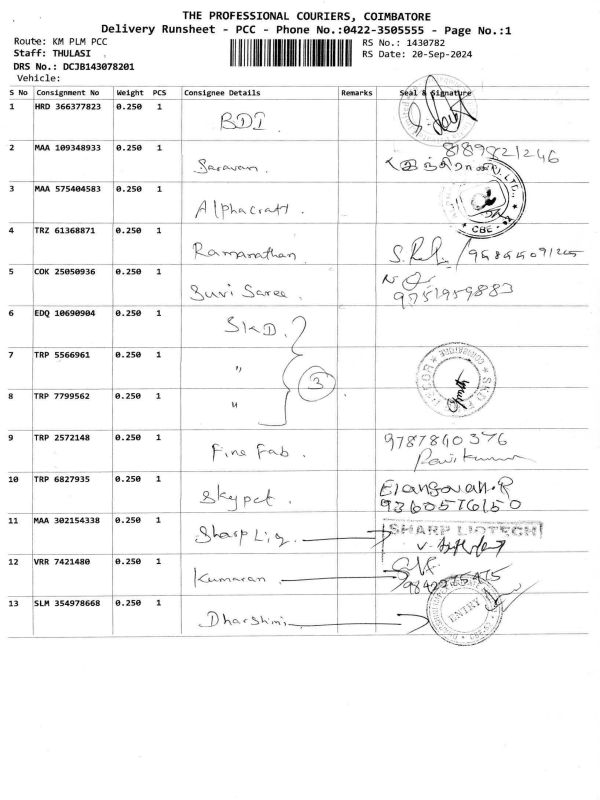 THE PROFESSIONAL COURIERS, COIMBATORE
Delivery Runsheet - PCC - Phone No.:0422-3505555 - Page No.:1
Route: KM PLM PCC RS No.: 1430782
Staff: THULASI . RS Date: 20-Sep-2024
DRS No.: DCJB143078201
Vehicle:
S No Consignment No Weight PCS Consignee Details Remarks Seal & Signature
1 HRD 366377823 0.250 1 BDI
2 MAA 109348933 0.250 1 Saravan. 8189821246
3 MAA 575404583 0.250 1 Alphacraft. CBE
4 TRZ 61368871 0.250 1 Ramanathan.
5 COK 25050936 0.250 1 Suvi Saree. 9751959883
6 EDQ 10690904 0.250 1 SKD.
7 TRP 5566961 0.250 1 " 3
8 TRP 7799562 0.250 1 " SKD COIMBATORE
9 TRP 2572148 0.250 1 Fine Fab. 9787840376
Ravikumar
10 TRP 6827935 0.250 1 Skypet. Elangovan.R
9360576150
11 MAA 302154338 0.250 1 Sharp Liq. SHARP LIQTECH
12 VRR 7421480 0.250 1 Kumaran
13 SLM 354978668 0.250 1 Dharshini ENTRY